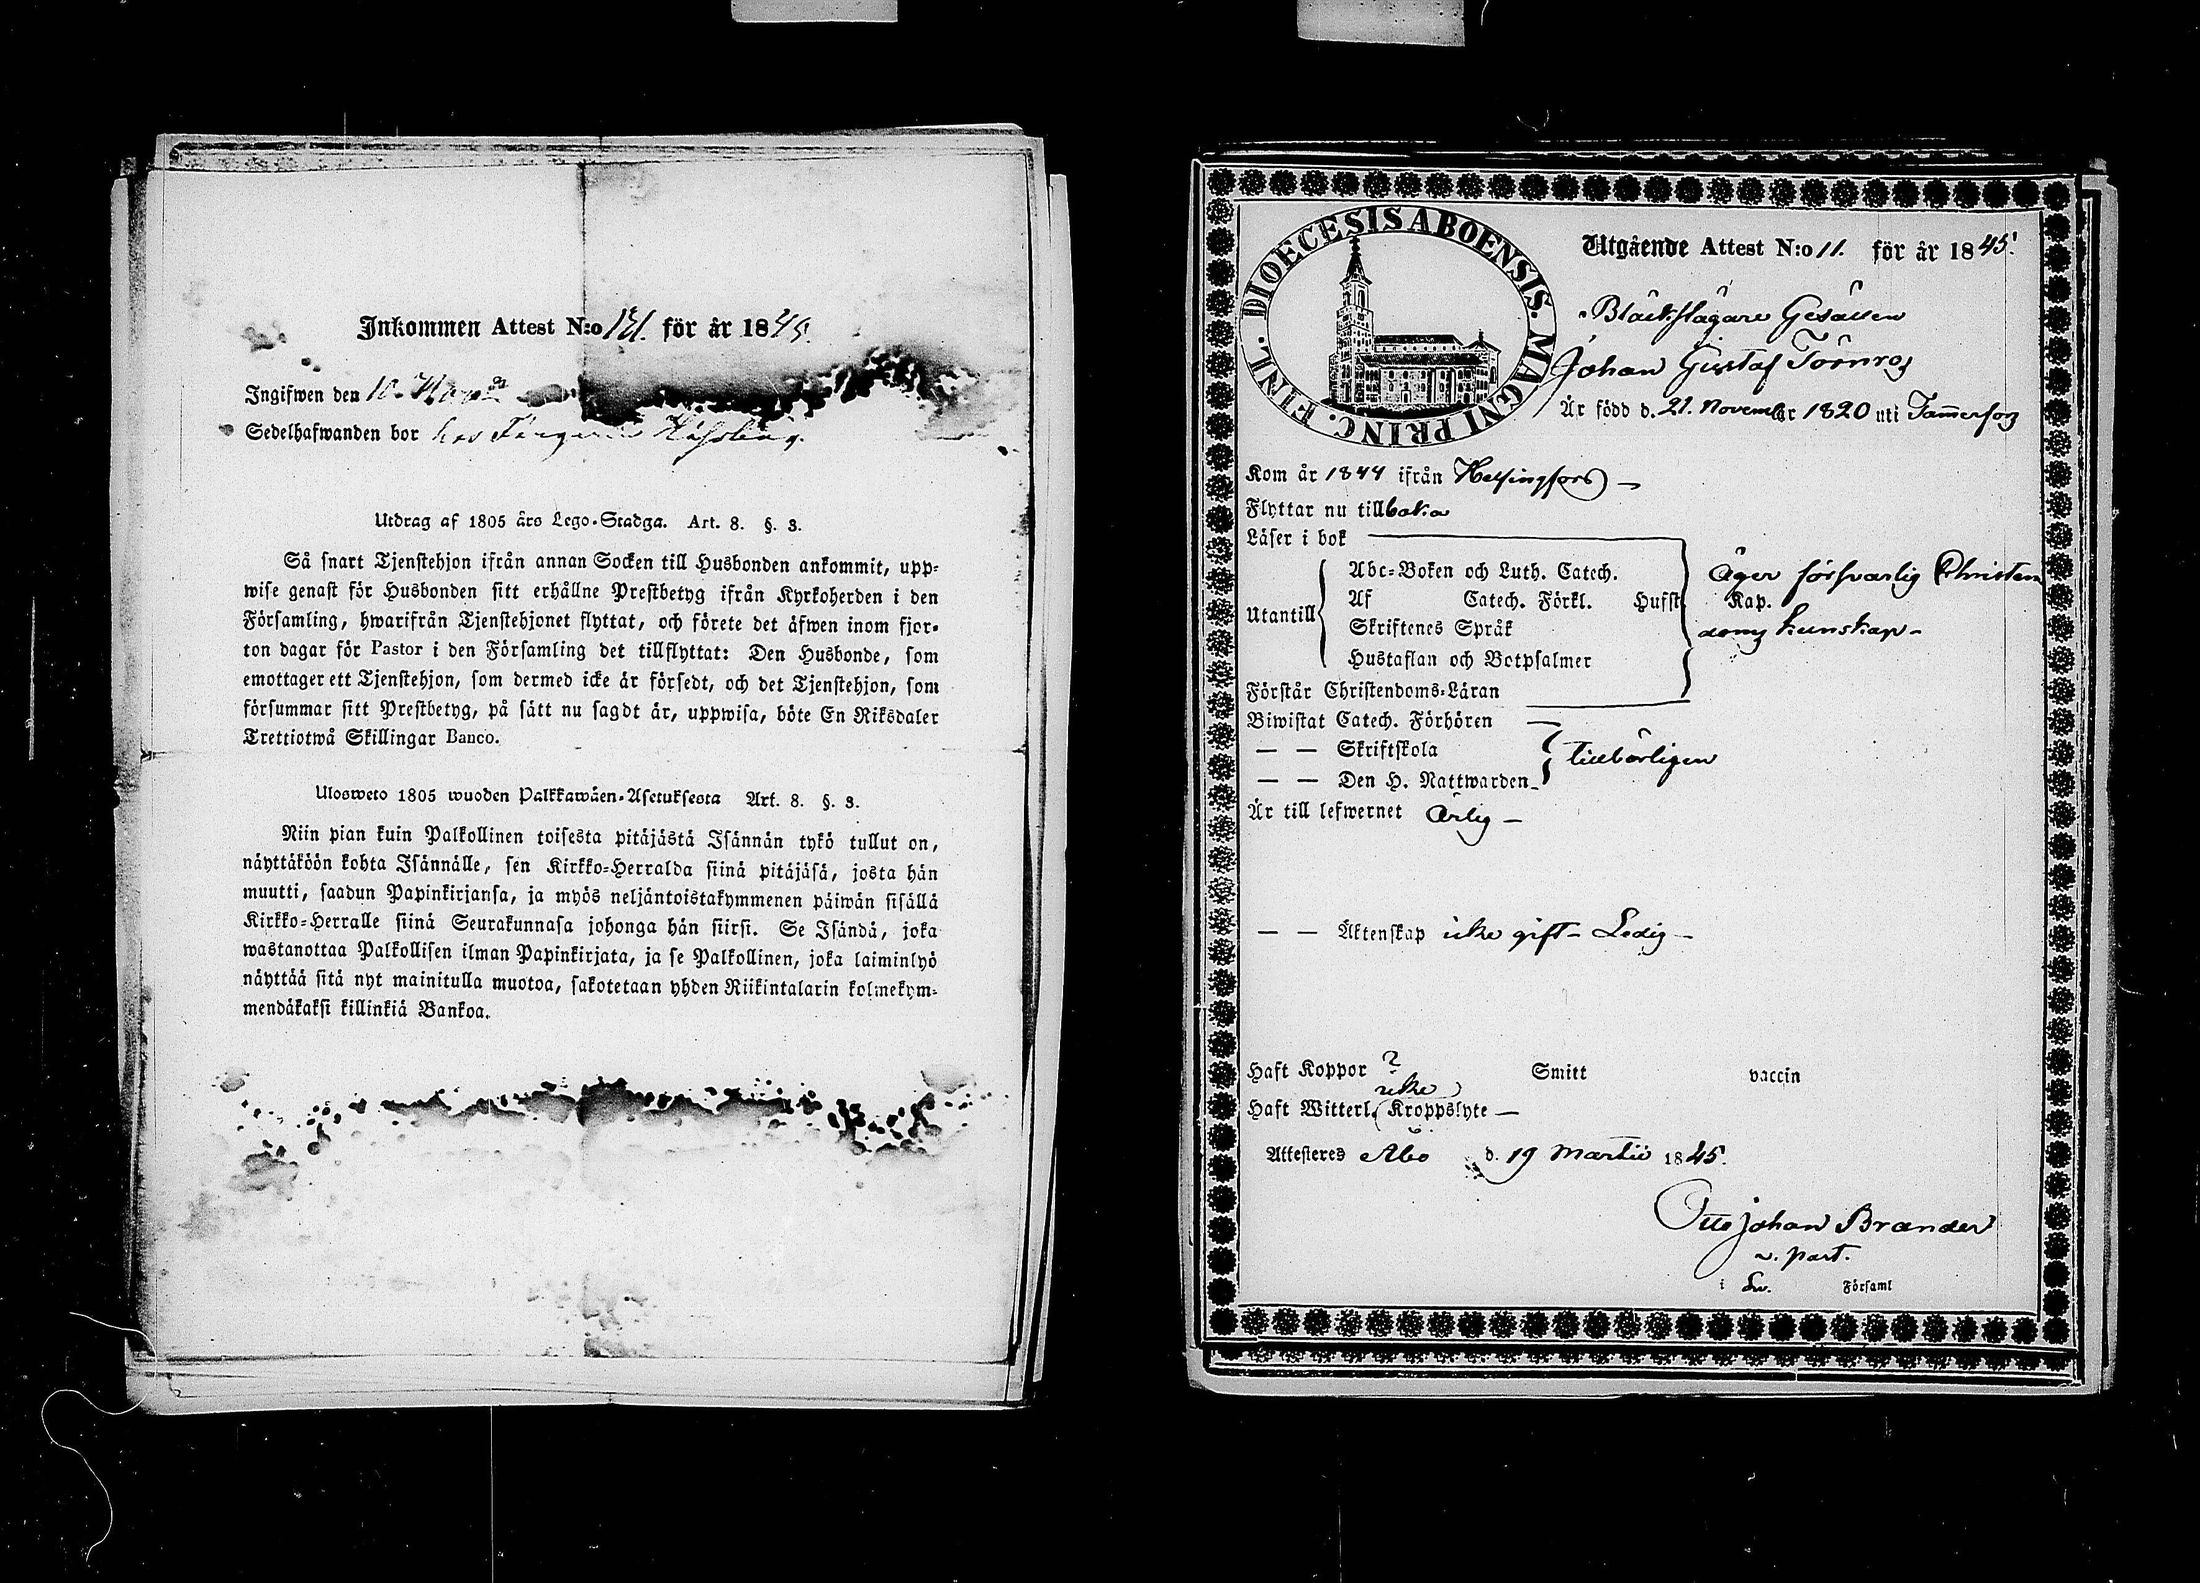 Inkommen Attest N:o 131. för år 1845.
Ingifwen den 10.
Sedelhafwanden bor hos
Utdrag af 1805 års Lego-Stadga. Art. 8. §. 3.
Så snart Tjenstehjon ifrån annan Socken till Husbonden ankommit, upp-
wise genast för Husbonden sitt erhållne Prestbetyg ifrån Kyrkoherden i den
Församling, hwarifrån Tjenstehjonet flyttat, och förete det äfwen inom fjor-
ton dagar för Pastor i den Församling det tillflyttat: Den Husbonde, som
emottager ett Tjenstehjon, som dermed icke är försedt, och det Tjenstehjon, som
försummar sitt Prestbetyg, på sätt nu sagdt är, uppwisa, böte En Riksdaler
Trettiotwå Skillingar Banco.
Ulosweto 1805 wuoden Palkkawäen-Asetuksesta Art. 8. §. 3.
Niin pian kuin Palkollinen toisesta pitäjästä Isännän tykö tullut on,
näyttäköön kohta Isännälle, sen Kirkko-Herralda siinä pitäjäsä, josta hän
muutti, saadun Papinkirjansa, ja myös neljäntoistakymmenen päiwän sisällä
Kirkko-Herralle siinä Seurakunnasa johonga hän siirsi. Se Isändä, joka
wastanottaa Palkollisen ilman Papinkirjata, ja se Palkollinen, joka laiminlyö
näyttää sitä nyt mainitulla muotoa, sakotetaan yhden Riikintalarin kolmekym-
mendäkaksi killinkiä Bankoa.
DIOECESIS ABOENSIS. MAGNI PRINC. FINL.
Utgående Attest N:o 11. för år 1845.
Bläckslagare Gesällen
Johan Gustaf Törnros
Är född d. 21. November 1820 uti Tammerfors
Kom år 1844 ifrån Helsingfors
Flyttar nu tillbaka
Läser i bok
Utantill Abc-Boken och Luth. Catech. Äger försvarlig Christen
Af Catech. Förkl. Hufst. Kap.
Skriftenes Språk doms kunskap
Hustaflan och Botpsalmer
Förstår Christendoms-Läran
Biwistat Catech. Förhören
— — Skriftskola tillbörligen
— — Den H. Nattwarden
Är till lefwernet ärlig
— — Äktenskap icke gift - Ledig
Haft Koppor ? Smitt vaccin
icke
Haft Witterl. Kroppslyte
Attesteres Åbo d. 19 Martii 1845.
Otto Johan Brander
v. past.
i Sv. Församl